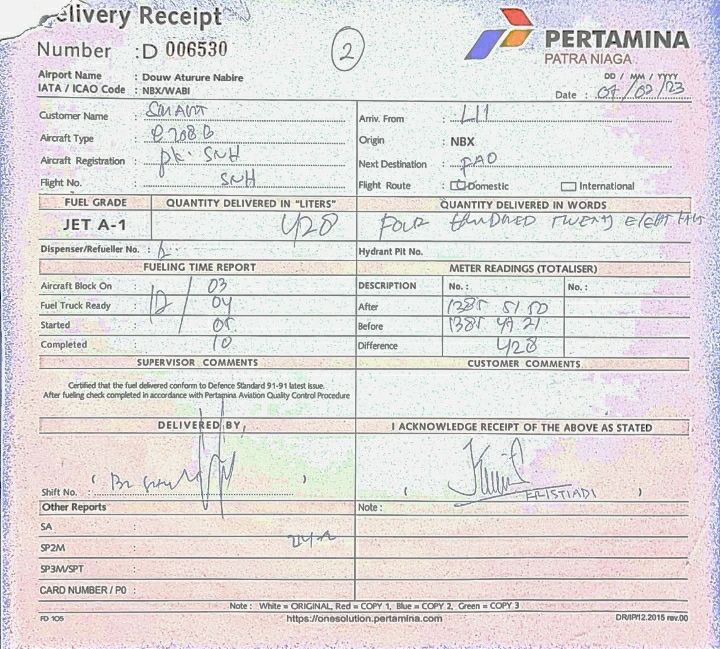 elivery Receipt
Number : D 006530
2
PERTAMINA
PATRA NIAGA
Airport Name : Douw Aturure Nabire
IATA / ICAO Code : NBX/WABI
DD / MM / YYYY
Date : 07/02/23
Customer Name : SMART
Arriv. From :
Aircraft Type : C 208 B
Origin : NBX
Aircraft Registration : PK. SNH
Next Destination :
Flight No. : SNH
Flight Route : Domestic International
FUEL GRADE QUANTITY DELIVERED IN "LITERS" QUANTITY DELIVERED IN WORDS
JET A-1 428 FOUR HUNDRED TWENTY EIGHT
Dispenser/Refueller No. :
Hydrant Pit No.
FUELING TIME REPORT METER READINGS (TOTALISER)
Aircraft Block On 03
DESCRIPTION No. : No. :
Fuel Truck Ready 04
After 1385 51 50
Started 05
Before 1385 47 21
Completed 10
Difference 428
SUPERVISOR COMMENTS CUSTOMER COMMENTS
Certified that the fuel delivered conform to Defence Standard 91-91 latest issue.
After fueling check completed in accordance with Pertamina Aviation Quality Control Procedure
DELIVERED BY, I ACKNOWLEDGE RECEIPT OF THE ABOVE AS STATED
Shift No. : ( ) ( ERISTIADI )
Other Reports Note :
SA :
SP2M :
SP3M/SPT :
CARD NUMBER / PO :
Note : White = ORIGINAL, Red = COPY 1, Blue = COPY 2, Green = COPY 3
FD 105 https://onesolution.pertamina.com DR/IP/12.2015 rev.00